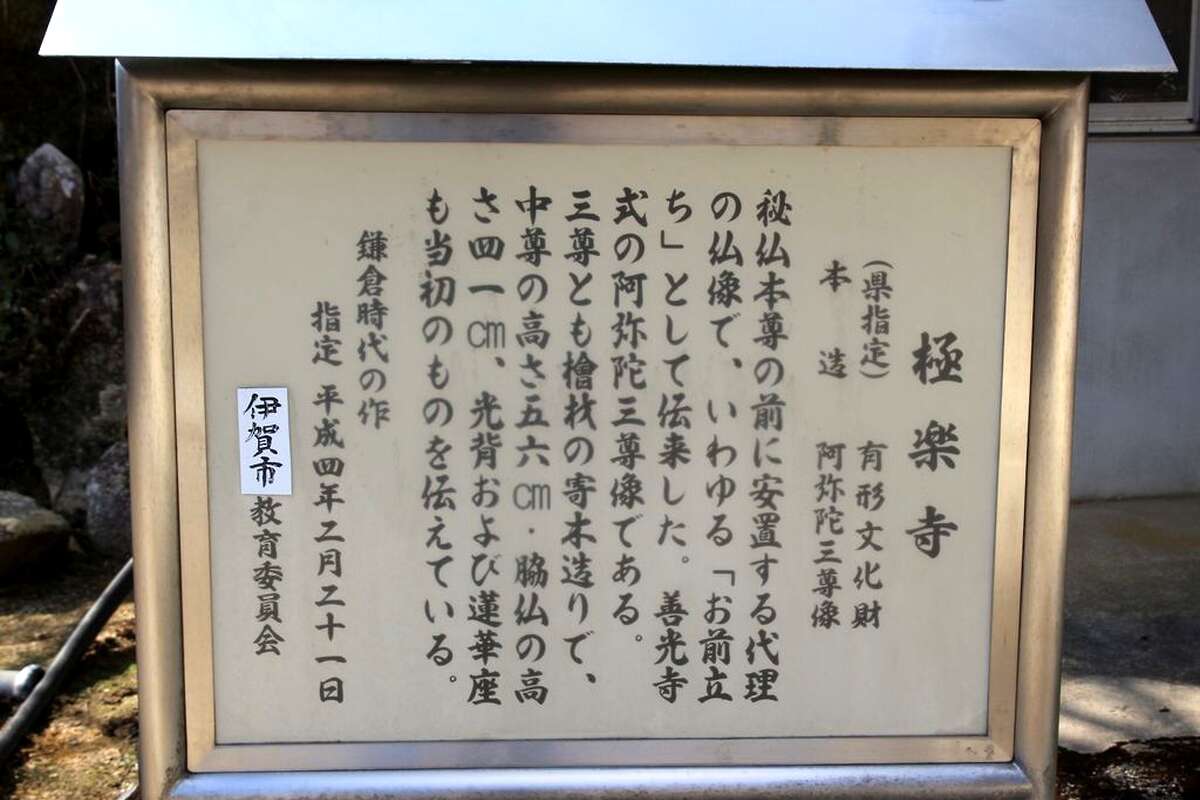 極楽寺
(県指定) 有形文化財
本造 阿弥陀三尊像
秘仏本尊の前に安置する代理
の仏像で、いわゆる「お前立
ち」として伝来した。善光寺
式の阿弥陀三尊像である。
三尊とも檜材の寄木造りで、
中尊の高さ五六cm・脇仏の高
さ四一cm、光背および蓮華座
も当初のものを伝えている。
鎌倉時代の作
指定 平成四年二月二十一日
伊賀市教育委員会